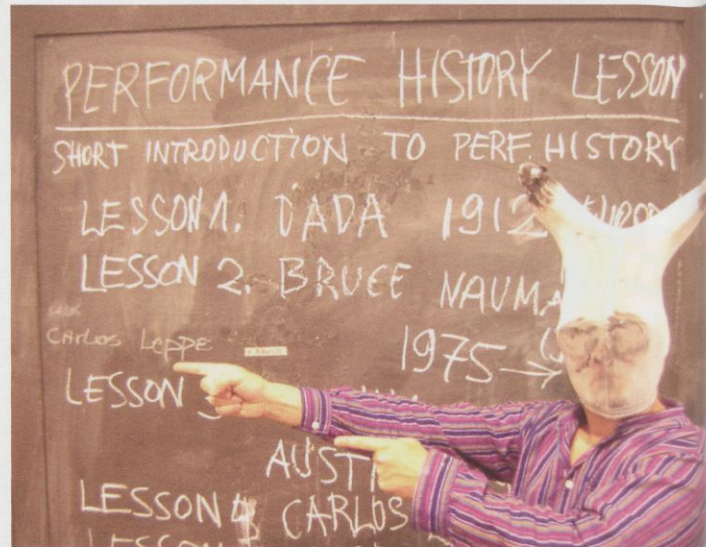 PERFORMANCE HISTORY LESSON
SHORT INTRODUCTION TO PERF HISTORY
LESSON 1. DADA 1912
LESSON 2. BRUCE NAUMA
CARLOS LEPPE
1975 →
LESSON
AUSTI
LESSON 4 CARLOS
LESSON